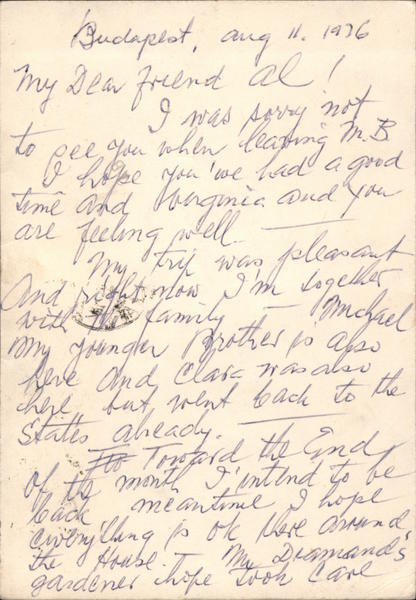 Budapest, Aug 11. 1976
My Dear friend Al!
I was sorry not
to see you when leaving M.B
I hope you've had a good
time and Virginia and you
are feeling well —
My trip was pleasant
And right now I'm together
with the family — Michael
My younger Brother is also
here And Clara was also
here but went back to the
States already. —
Toward the End
of the month I intend to be
back meantime I hope
everything is ok there around
the House. — My
gardener hope took care